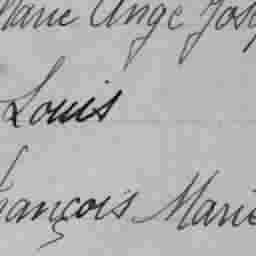 Marie Ange Jose
Louis
François Marie